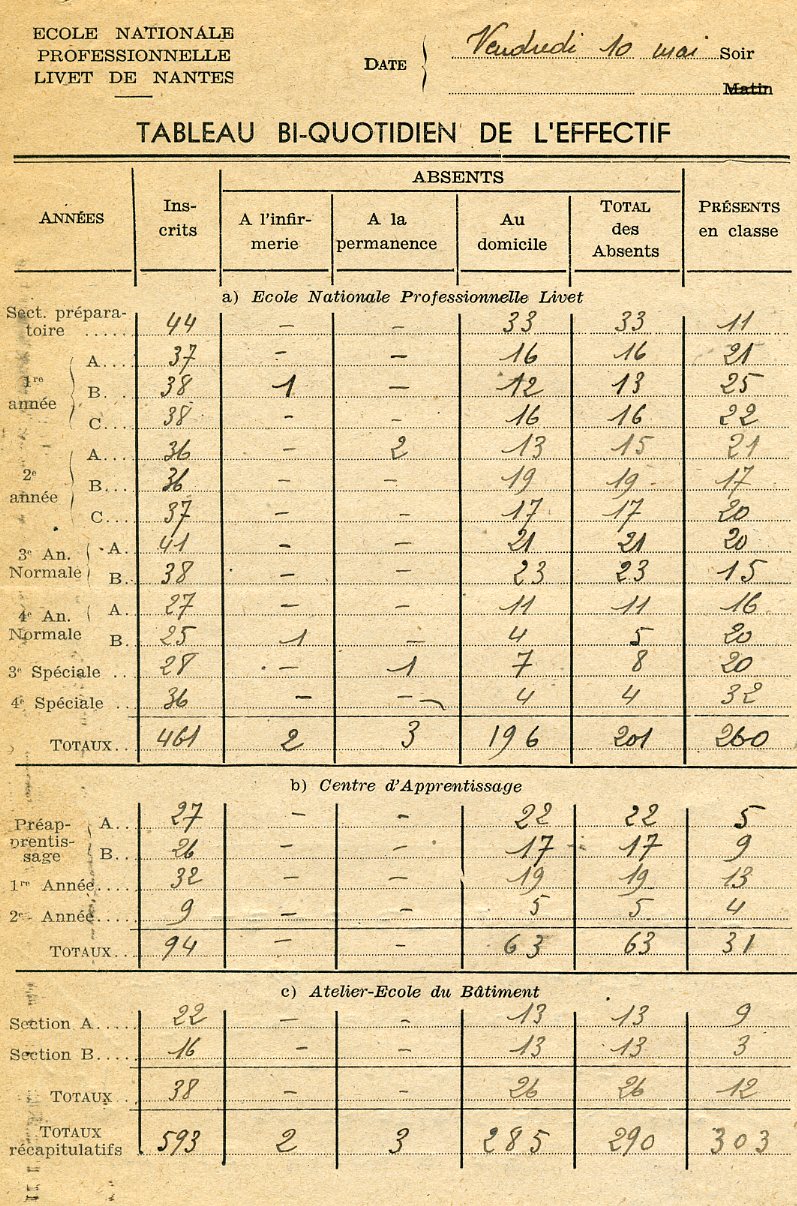 ECOLE NATIONALE
PROFESSIONNELLE
LIVET DE NANTES
DATE Vendredi 10 mai Soir
Matin
TABLEAU BI-QUOTIDIEN DE L'EFFECTIF
ABSENTS
ANNÉES Ins-crits A l'infir-merie A la permanence Au domicile TOTAL des Absents PRÉSENTS en classe
a) Ecole Nationale Professionnelle Livet
Sect. prépara-toire ..... 44 – – 33 33 11
1re année A.... 37 – – 16 16 21
B... 38 1 – 12 13 25
C... 38 – – 16 16 22
2e année A.... 36 – 2 13 15 21
B.... 36 – – 19 19 17
C.... 37 – – 17 17 20
3e An. Normale A. 41 – – 21 21 20
B. 38 – – 23 23 15
4e An. Normale A. 27 – – 11 11 16
B. 25 1 – 4 5 20
3e Spéciale .. 28 – 1 7 8 20
4e Spéciale .. 36 – – 4 4 32
TOTAUX.. 461 2 3 196 201 260
b) Centre d'Apprentissage
Préap-prentis-sage A.. 27 – – 22 22 5
B.. 26 – – 17 17 9
1re Année.... 32 – – 19 19 13
2e Année.... 9 – – 5 5 4
TOTAUX.. 94 – – 63 63 31
c) Atelier-Ecole du Bâtiment
Section A..... 22 – – 13 13 9
Section B.... 16 – – 13 13 3
TOTAUX.. 38 – – 26 26 12
TOTAUX récapitulatifs 593 2 3 285 290 303